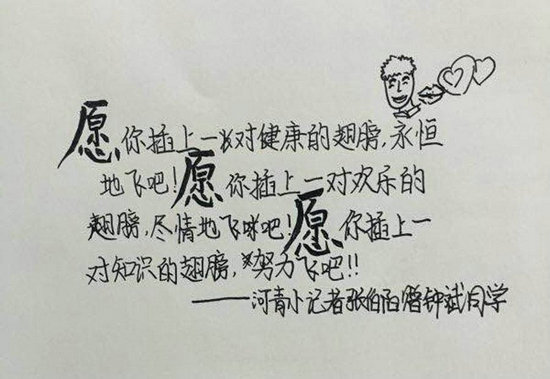 愿你插上一对健康的翅膀,永恒
地飞吧!愿你插上一对欢乐的
翅膀,尽情地飞吧!愿你插上一
对知识的翅膀,努力飞吧!!
——河青小记者张伯阳赠钟斌同学